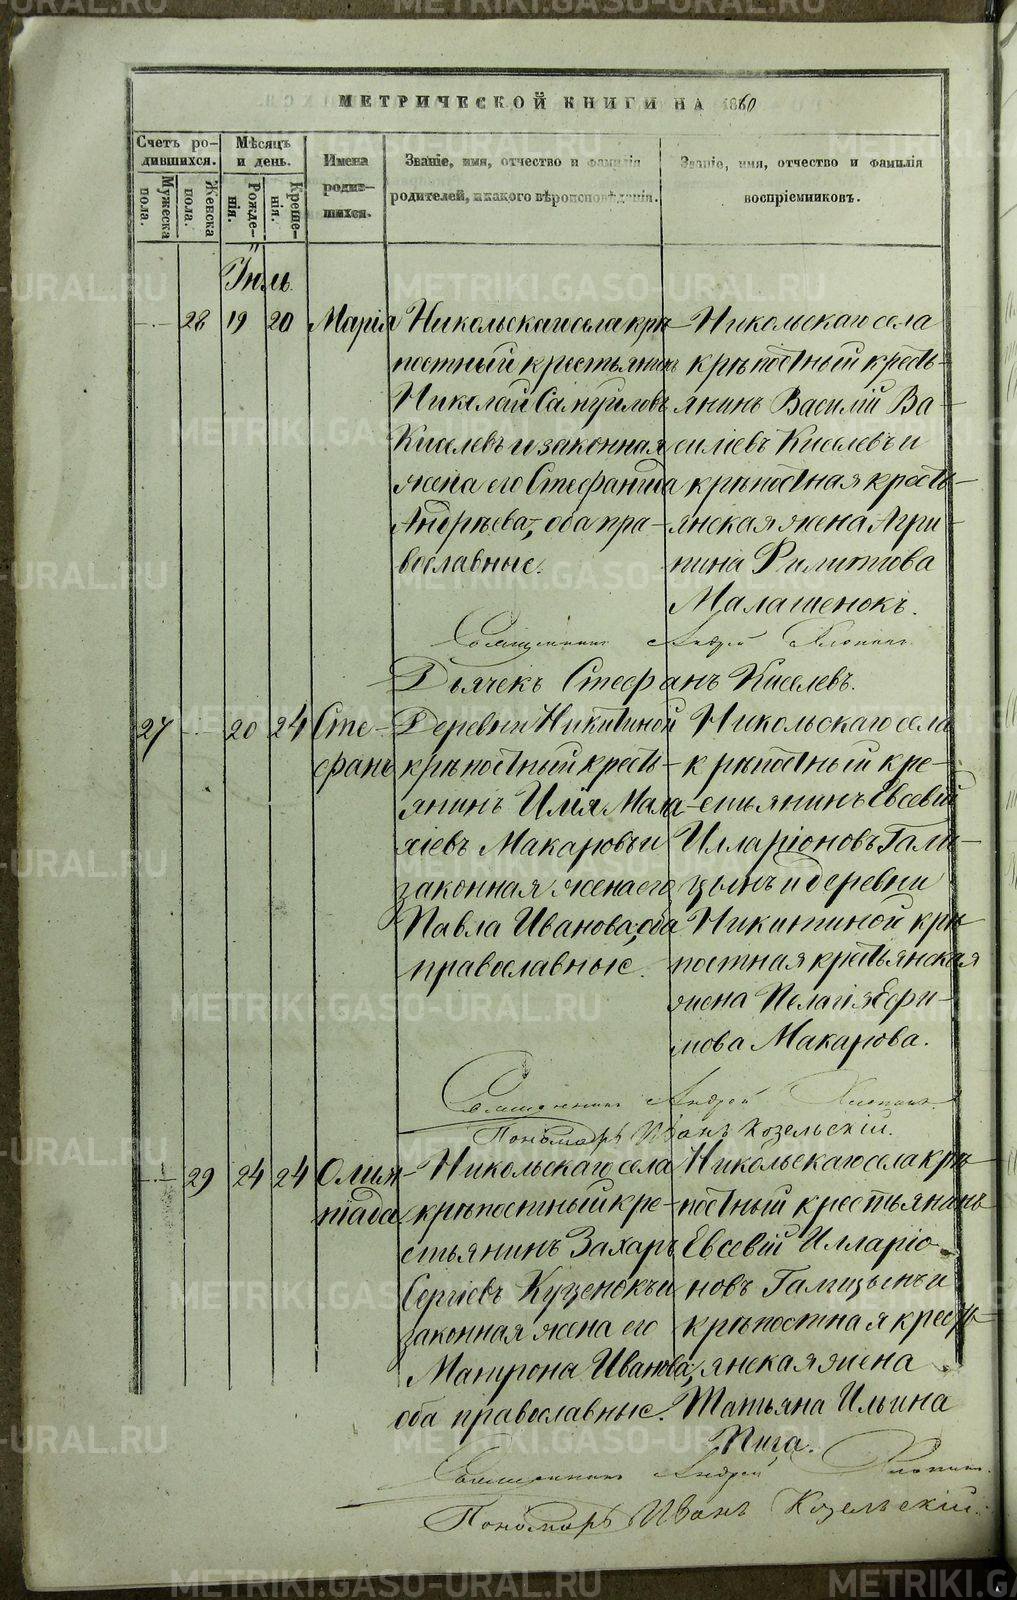 МЕТРИЧЕСКОЙ КНИГИ НА 1860
Счетъ ро-
дившихся.
Мужеска
пола.
Женска
пола.
Мѣсяцъ
и день.
Рожде-
нія.
Креще-
нія.
Имена
родив-
шихся.
Званіе, имя, отчество и фамилія
родителей, и какого вѣроисповѣданія.
Званіе, имя, отчество и фамилія
воспріемниковъ.
Іюль
28 19 20 Марія
Никольскаго села крѣ-
постный крестьянинъ
Николай Самуиловъ
Киселевъ и законная
жена его Стефанида
Андрѣева, оба пра-
вославные.
Никольскаго села
крѣпостный кресть-
янинъ Василій Ва-
силіевъ Киселевъ и
крѣпостная кресть-
янская жена Агри-
пина Филиппова
Малашенокъ.
Священникъ Андрей
Дьячекъ Стефанъ Киселевъ.
27 20 24 Сте-
фанъ
Деревни Никитиной
крѣпостный кресть-
янинъ Илія Мала-
хіевъ Макаровъ и
законная жена его
Павла Иванова, оба
православные.
Никольскаго села
крѣпостный кре-
стьянинъ Евсевій
Илларіоновъ Гали-
цынъ и деревни
Никитиной крѣ-
постная крестьянская
жена Пелагія Ефи-
мова Макарова.
Священникъ Андрей
Пономарь Иванъ Козельскій.
29 24 24 Олим-
піада
Никольскаго села
крѣпостный кре-
стьянинъ Захаръ
Сергіевъ Куценокъ и
законная жена его
Матрона Иванова,
оба православные.
Никольскаго села крѣ-
постный крестьянинъ
Евсевій Илларіо-
новъ Галицынъ и
крѣпостная кресть-
янская жена
Татьяна Ильина
Пига.
Священникъ Андрей
Пономарь Иванъ Козельскій.
METRIKI.GASO-URAL.RU